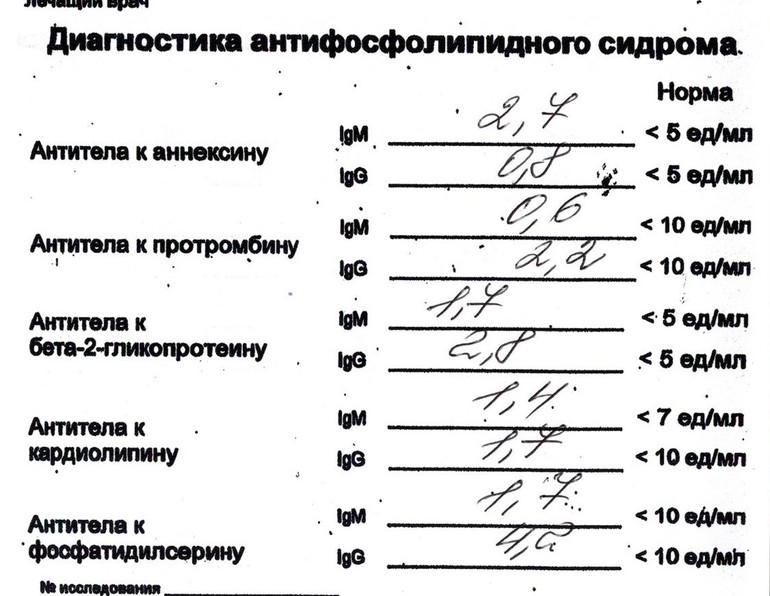 лечащий врач
Диагностика антифосфолипидного сидрома.
Норма
IgM 2,7 < 5 ед/мл
Антитела к аннексину
IgG 0,8 < 5 ед/мл
IgM 0,6 < 10 ед/мл
Антитела к протромбину
IgG 2,2 < 10 ед/мл
Антитела к IgM 1,7 < 5 ед/мл
бета-2-гликопротеину IgG 2,8 < 5 ед/мл
Антитела к IgM 1,4 < 7 ед/мл
кардиолипину IgG 1,7 < 10 ед/мл
Антитела к IgM 1,7 < 10 ед/мл
фосфатидилсерину IgG 4,2 < 10 ед/мл
№ исследования